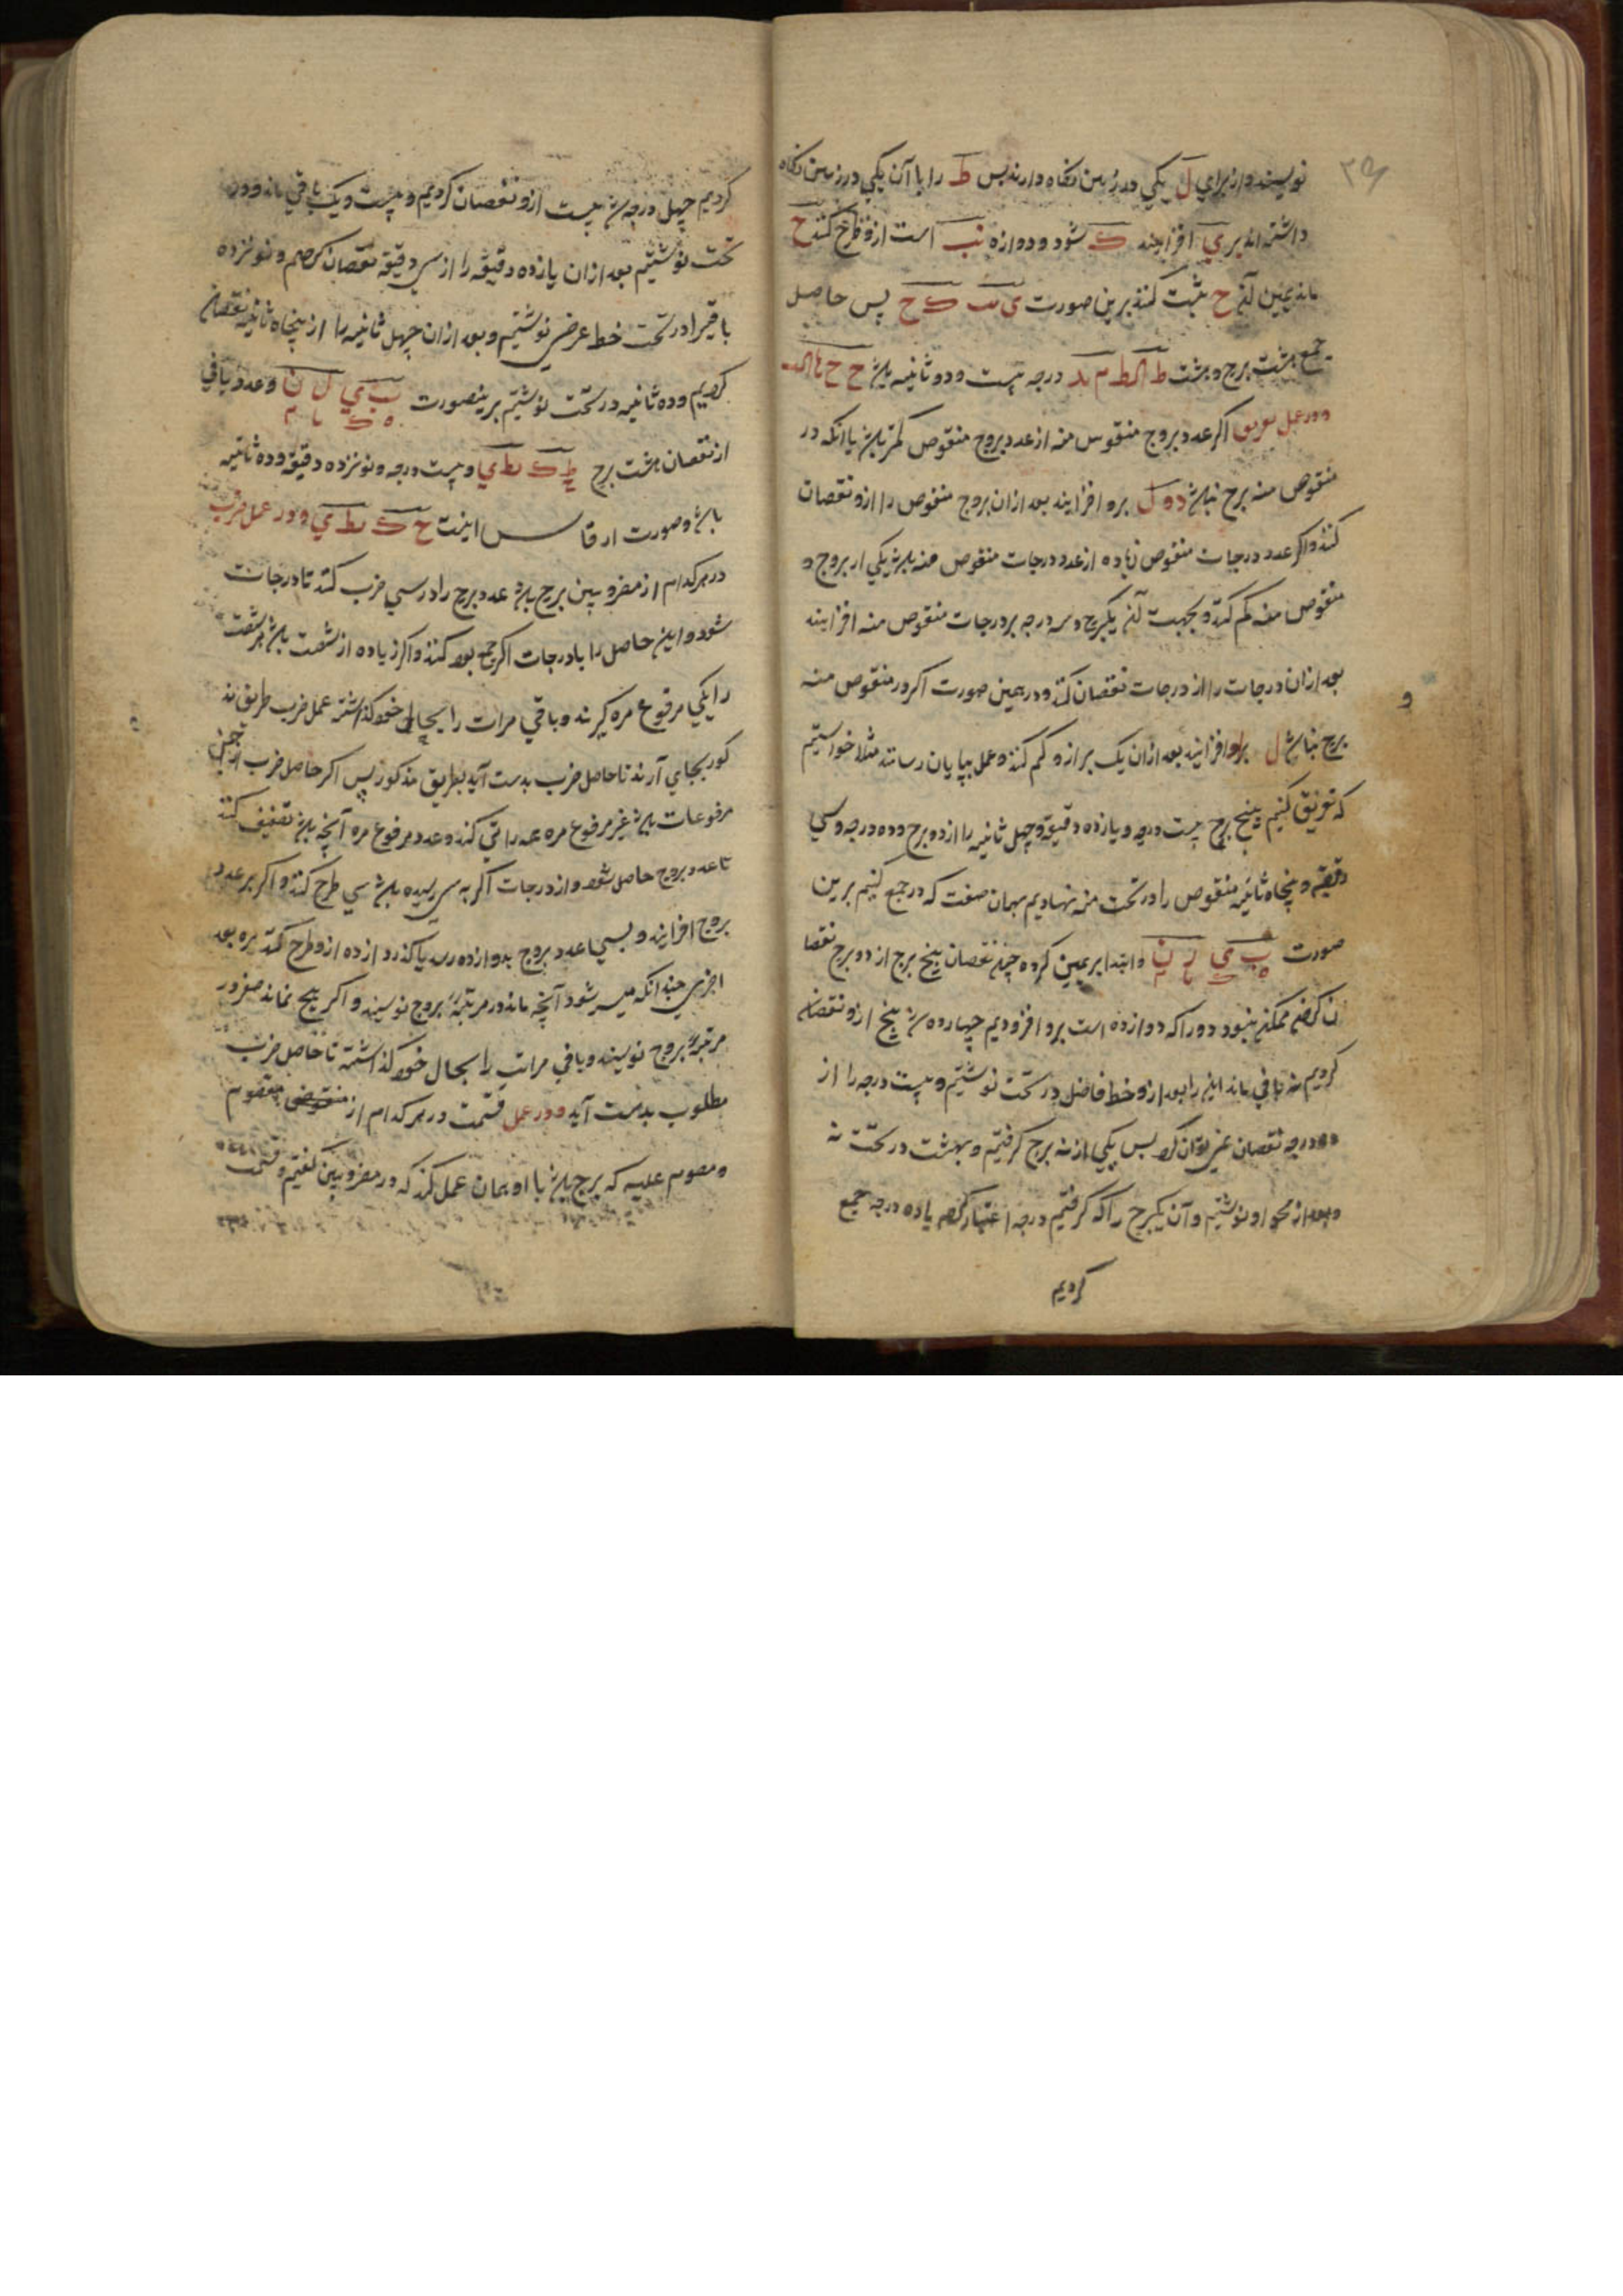 نویسند و از برای ل یکی در ذهن نگاه دارند پس ط را با آن یکی در ذهن نگاه
داشته اند بر ی افزایند ک شود و دوازه یب است ازو طرح کنند ح
ماند یمین آن ح ثبت کنند برین صورت ی ک ح پس حاصل
جمع هشت برج و هشت درجه بیست و دو ثانیه باشد ح ح
و در عمل تفریق اگر عدد بروج منقوس منه از عدد بروج منقوص کمتر باشد یا انکه در
منقوص منه برج نباشد دو ل برو افزایند بعد ازان بروج منقوص را ازو نقصان
کنند و اگر عدد درجات منقوص زیاده از عدد درجات منقوص منه باشد یکی از بروج و
منقوص منه کم کنند و بجهت آن یکبرج و سه درجه بر درجات منقوص منه افزایند
بعد ازان درجات را از درجات نقصان کنند و در همین صورت اکر در منقوص منه
برج نباشد ل برو افزایند بعد ازان یک بر ازو کم کنند و عمل بپایان رسانند مثلا خواستیم
که تفریق کنیم پنج برج بیست درجه و یازده دقیقه و چهل ثانیه را از دو برج و ده درجه و سی
دقیقه و پنجاه ثانیه منقوص را در تحت منه نهادیم بهمان صفت که در جمع کنیم برین
صورت ب ی ل ن و ابتدا بر یمین کرده چون نقصان پنج برج از دو برج نقصا
ن کردن ممکن نبود دور را که دوازده است برو افزودیم چهارده شد پنج ازو نقصان
کردیم نه باقی ماند این را بعد ازو خط فاضل در تحت نوشتیم و بیست درجه را از
ده درجه نقصان نمی توان کرد پس یکی از نه برج کرفتیم و بهشت در تحت نه
و بعد از محو او نوشتیم و آن یکبرج را که کرفتیم درجه اعتبار کردیم با ده درجه جمع
کردیم
کردیم چهل درجه شد بیست ازو نقصان کردیم و بیست و یک باقی ماند و در
تحت نوشتیم بعد ازان یازده دقیقه را از سی دقیقه نقصان کردیم و نوزده
باقیرا در تحت خط عرضی نوشتیم و بعد ازان چهل ثانیه را از پنجاه ثانیه نقصان
کردیم و ده ثانیه در تحت نوشتیم برینصورت ب ی ل ن و عدد باقی
ه ک یا م
از نقصان هشت برج ک یط ی و بیست درجه و نونزده دقیقه و ده ثانیه
باشد و صورت ارقا س اینست ح ک یط ی و در عمل ضرب
در هرکدام از مضروبین برج باشد عدد برج را در سی ضرب کنند تا درجات
شود و این حاصل را با درجات اکر جمع بود کنند و اکر زیاده از شصت باشد هر شصت
را یکی مرفوع مره کیرند و باقی مرات را بحال خود کذاشته عمل ضرب طریق مذ
کور بجای آرند تا حاصل ضرب بدست آید بطریق مذکور پس اکر حاصل ضرب از جنس
مرفوعات باشد غیر مرفوع مره همه را نفی کنند و عدد مرفوع مره آنچه باشد تضعیف کنند
تا عدد بروج حاصل شود و از درجات اکر به سی رسیده باشد سی طرح کنند و اکر بر عدد
بروج افزایند و بسی عدد بروج بدوازده رسد یا کذرد ازده ازو طرح کنند مره بعد
اخری چندانکه میسر شود آنچه ماند در مرتبه بروج نویسند و اکر هیچ نماند صفر در
مرتبه بروج نویسند و باقی مراتب را بحال خود کذاشته تا حاصل ضرب
مطلوب بدست آید و در عمل قسمت در هر کدام از منقوص مقسوم
و مقسوم علیه که برج باشد با او همان عمل کنند که در مضروبین کفتیم و قسمت